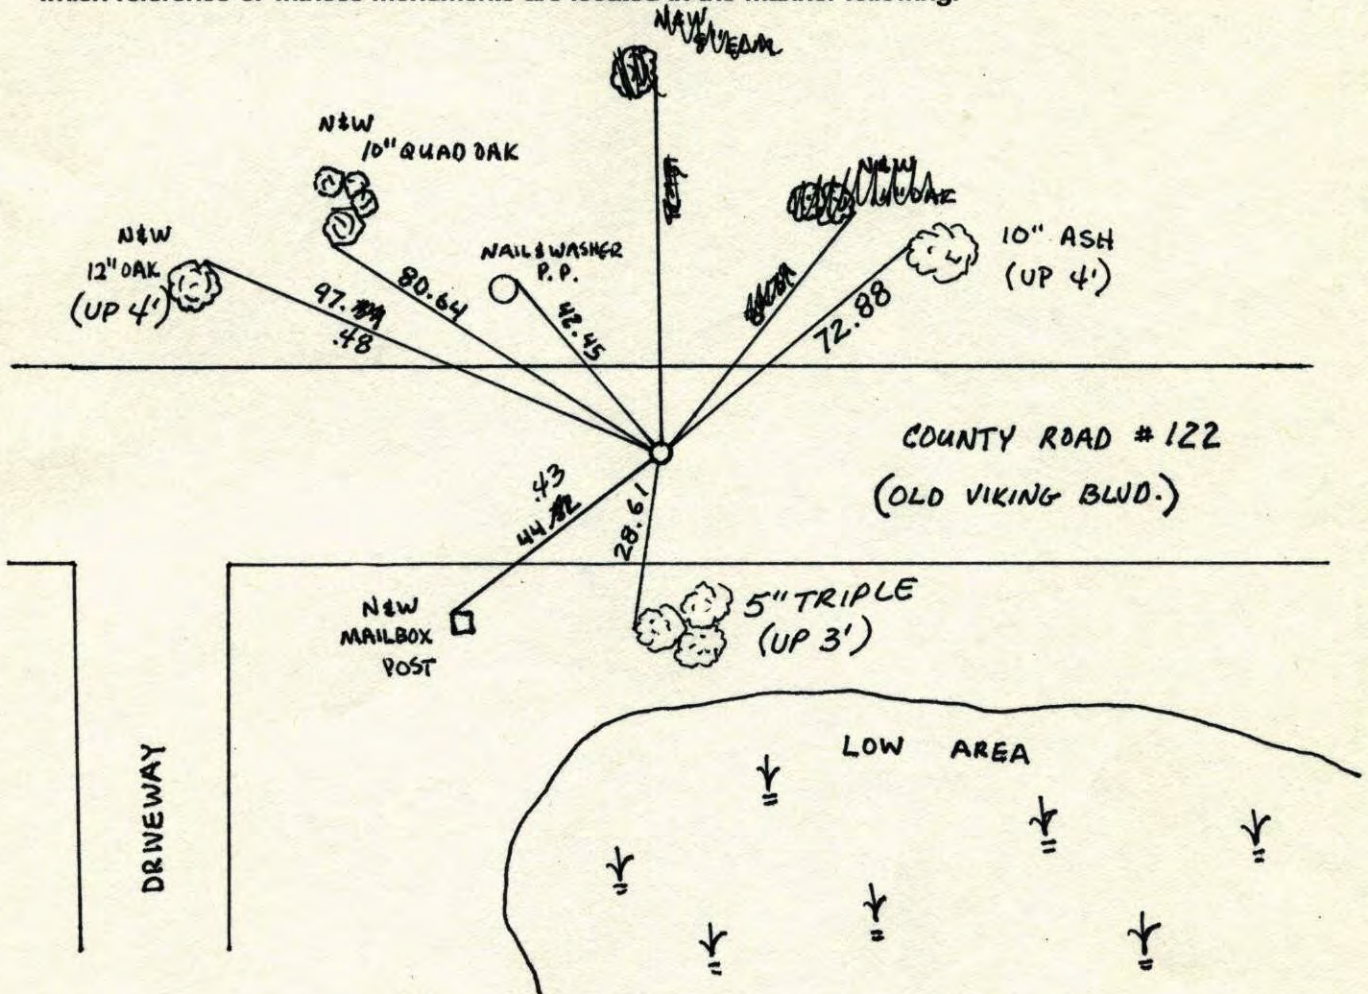 N&W
10" QUAD OAK
N&W
12" OAK
(UP 4')
NAIL & WASHER
P.P.
10" ASH
(UP 4')
97.
.48
80.64
42.45
72.88
COUNTY ROAD # 122
(OLD VIKING BLVD.)
.43
44.
28.61
N&W
MAILBOX
POST
5" TRIPLE
(UP 3')
LOW AREA
DRIVEWAY